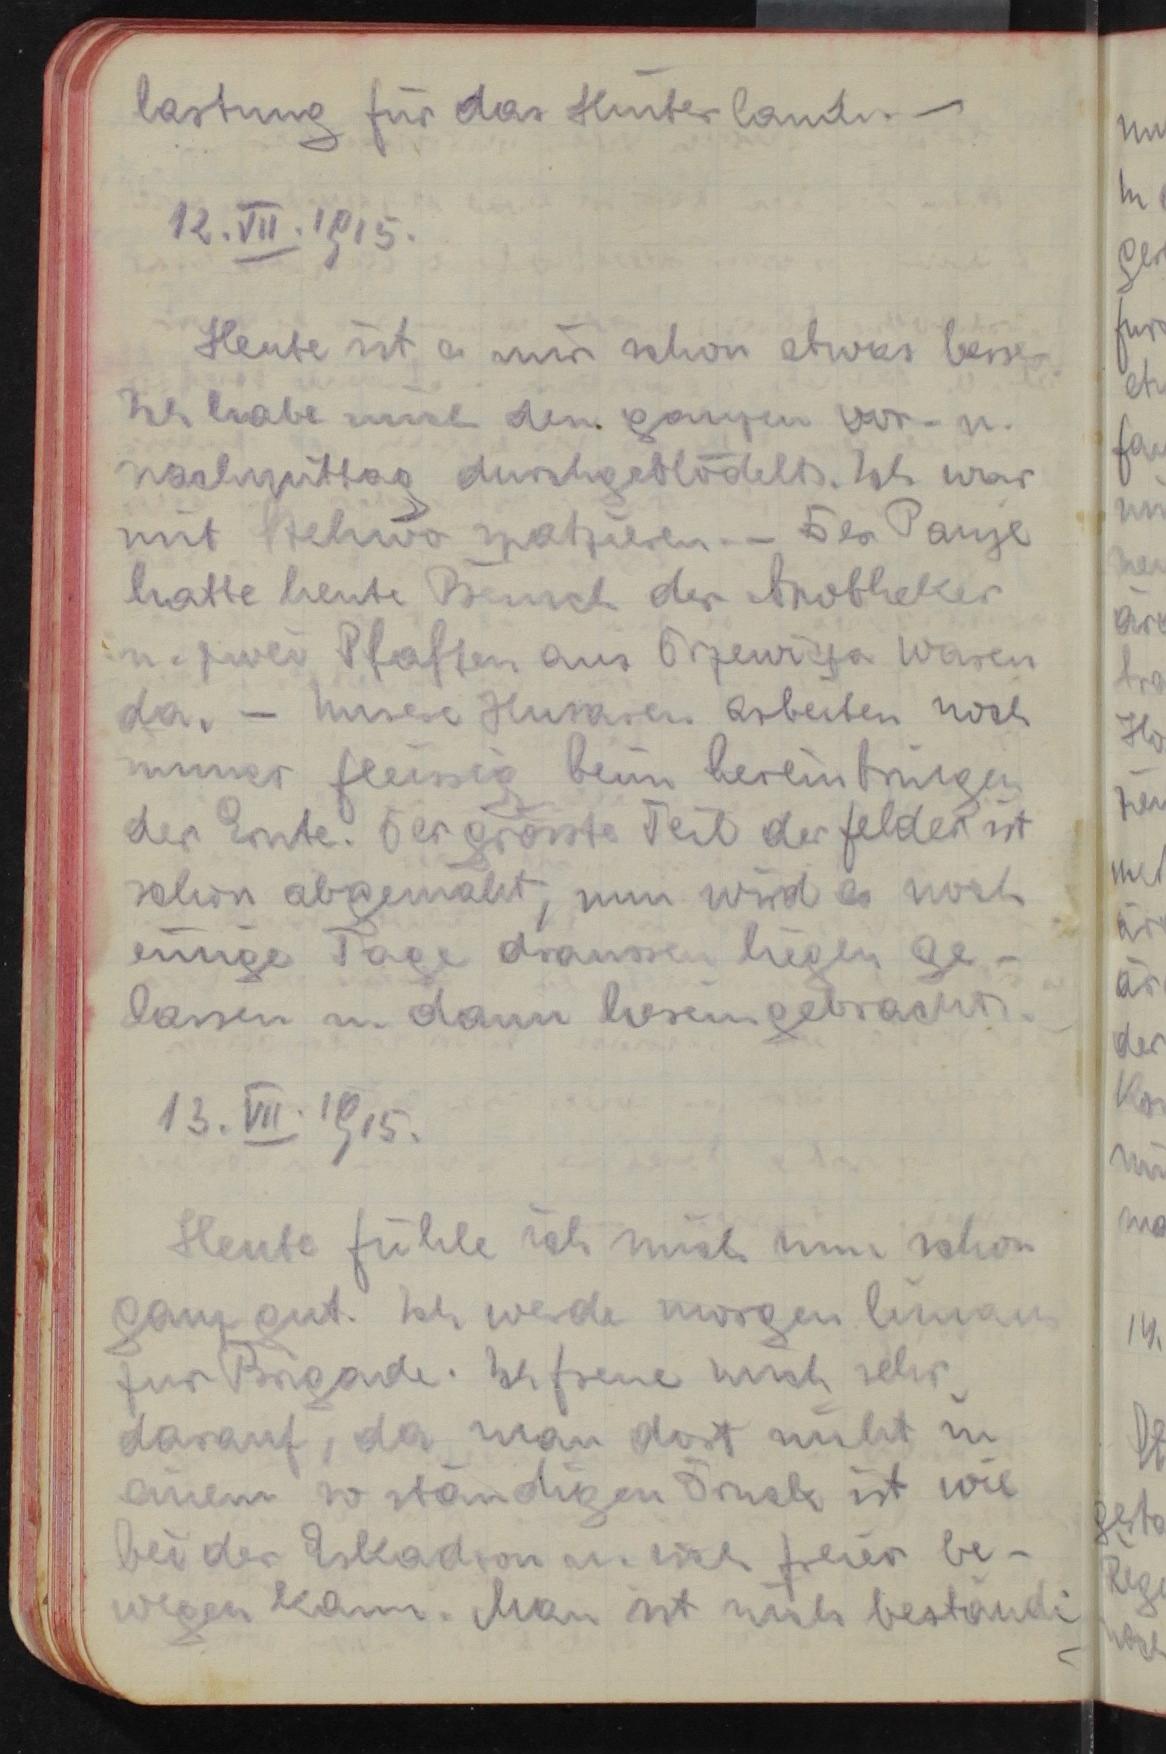 lastung für das Hinterland. —
12. VII. 1915.
Heute ist es mir schon etwas besser.
Ich habe mich den ganzen vor- u.
nachmittag durchgeblödelt. Ich war
mit spatzieren. — Der Panje
hatte heute Besuch der Apotheker
u. zwei Pfaffen aus Drzewica waren
da. — Unsere Husaren arbeiten noch
immer fleissig beim hereinbringen
der Ernte. Der grösste Teil der felder ist
schon abgemäht, nun wird es noch
einige Tage draussen liegen ge-
lassen u. dann hereingebracht. —
13. VII. 1915.
Heute fühle ich mich nun schon
ganz gut. Ich werde morgen hinaus
zur Brigade. Ich freue mich sehr
darauf, da man dort nicht in
einem so ständigen Druck ist wie
bei der Eskadron u. sich freier be-
wegen kann. Man ist nicht beständi-